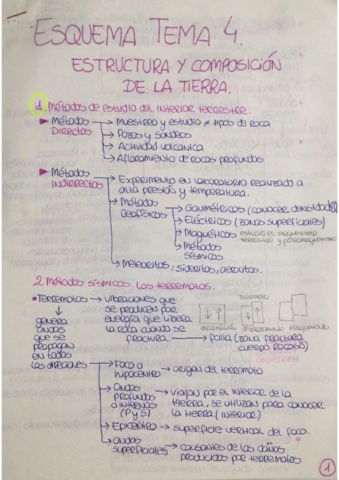 ESQUEMA TEMA 4.
ESTRUCTURA Y COMPOSICIÓN
DE LA TIERRA.
1. Métodos de estudio del interior terrestre.
▶ Métodos Directos → Muestreo y estudio ≠ tipos de roca
→ Pozos y sondeos
→ Actividad volcánica
→ Afloramiento de rocas profundas
▶ Métodos Indirectos → Experimento en laboratorio realizado a
alta presión y temperatura.
→ Métodos Geofísicos → Gravimétricos (conocer densidad)
→ Eléctricos (zonas superficiales)
→ Magnéticos estudio el magnetismo
terrestre y paleomagnetismo
→ Métodos
sísmicos
→ Meteoritos: sideritos, aerolitos.
2. Métodos sísmicos. Los terremotos.
• Terremotos → vibraciones que
se producen por
energía que libera
la roca cuando se
fractura → falla (zona fractura
cuerpo rocoso)
↓ genera
ondas
que se
propagan
en todas
las direcciones → Foco o
hipocentro → origen del terremoto
→ Ondas
profundas
o internas
(P y S) → viajan por el interior de la
tierra, se utilizan para conocer
la tierra (interior)
→ Epicentro → superficie vertical del foco.
→ Ondas
superficiales → causantes de los daños
producidos por terremotos
1